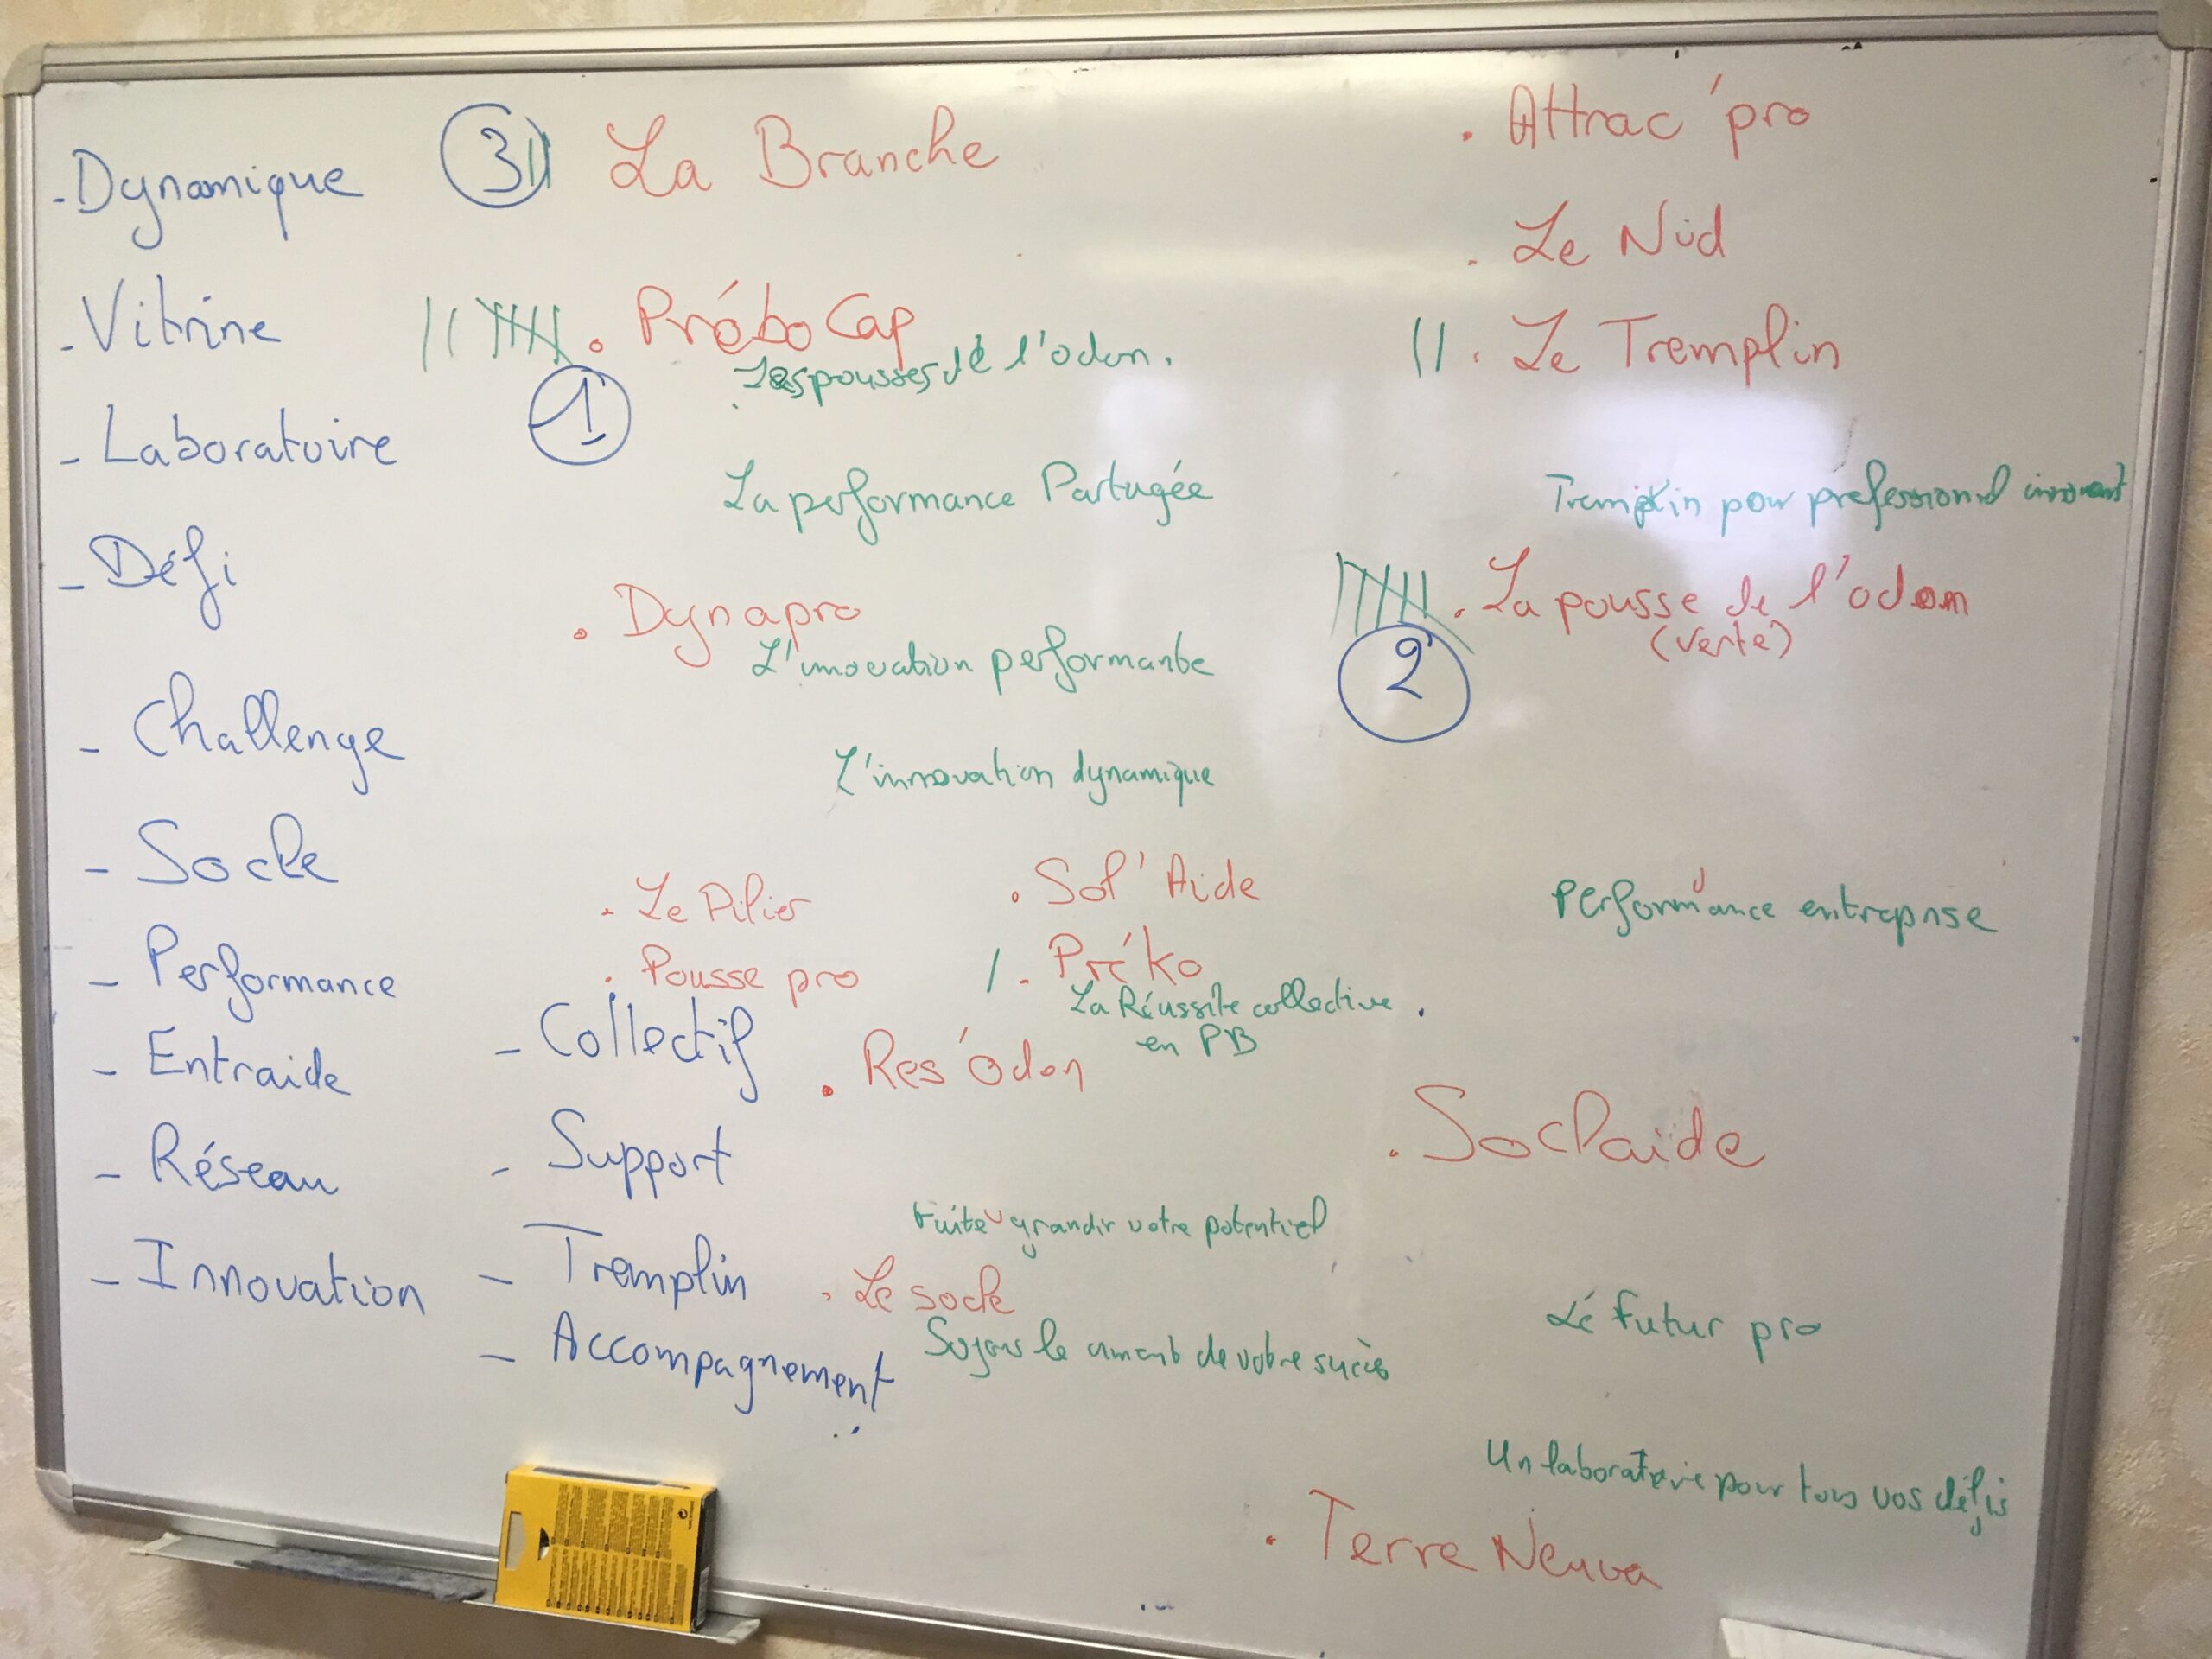 - Dynamique
- Vitrine
- Laboratoire
- Défi
- Challenge
- Socle
- Performance
- Entraide
- Réseau
- Innovation
- Collectif
- Support
- Tremplin
- Accompagnement
3 || La Branche
|| . PréboCap
1
Les pousses de l'odon.
La performance Partagée
. Dynapro
L'innovation performante
L'innovation dynamique
. Le Pilier
. Pousse pro
. Sol'Aide
/ - Pré'ko
La Réussite collective.
en PB
. Res'Odon
grandir votre potentiel
. Le socle
le de votre succès
. Attrac'pro
. Le Nid
|| . Le Tremplin
Tremplin pour professionnel
. La pousse de l'odon
(verte)
2
Performance entreprise
. Soclaide
Le futur pro
Un laboratoire pour tous vos défis
. Terre Neuva